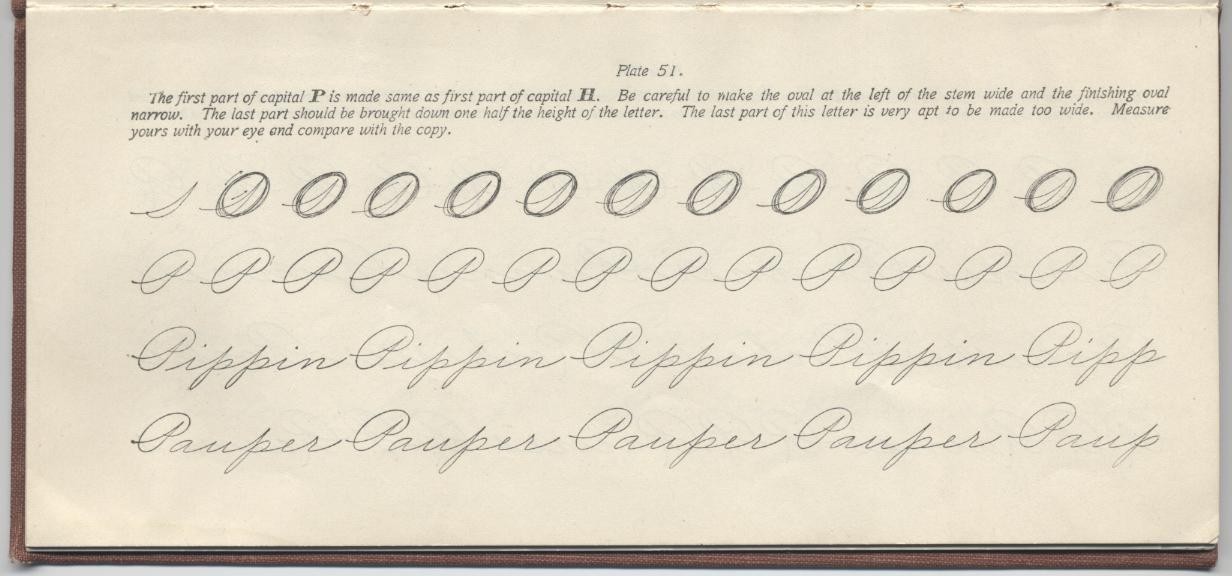 Plate 51.
The first part of capital P is made same as first part of capital H. Be careful to make the oval at the left of the stem wide and the finishing oval
narrow. The last part should be brought down one half the height of the letter. The last part of this letter is very apt to be made too wide. Measure
yours with your eye and compare with the copy.
P P P P P P P P P P P P P P
Pippin Pippin Pippin Pippin Pipp
Pauper Pauper Pauper Pauper Paup